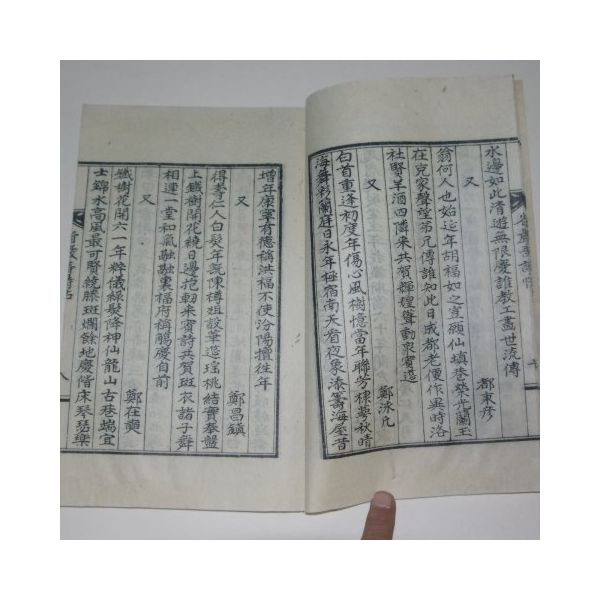 水邊如此淸遊無限慶誰敎工畵世流傳
又
都東彦
翁何人也始迨年胡福如之宣額仙塡巷榮光蘭玉
在克家聲望弟兄傳誰知此日成都老便作耆時洛
社賢羊酒四隣來共賀輝煌聳動衆賓筵
又
鄭泳凡
白首重逢初度年傷心風樹憶當年聯芳棣萼秋晴
海舞彩蘭庭日永年極宿南天看夜象添籌海屋昔
增年康寧有德稱洪福不使汾陽擅往年
又
鄭昌鎭
得壽仁人白髮年旣陳樽俎設華筵瑤桃結實奉盤
上鐵樹開花繞日邊抱軔來賓詩共賀斑衣諸子舞
相連一堂和氣融融裏福府稱觴慶自前
又
鄭在奭
鐵樹花開六一年粹儀綠髮降神仙龍山古巷端宜
士錦水高風最可賢繞膝斑斕餘地慶偕床琴瑟樂